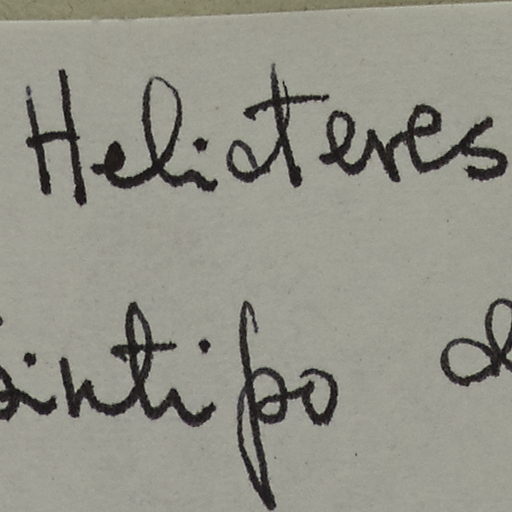 Helicteres
sintipo d